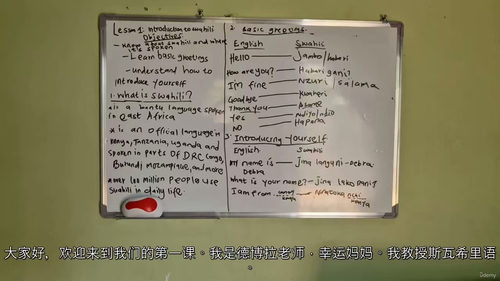 Lesson 1: Introduction to swahili
Objectives:
- Know about swahili and where it's spoken
- Learn basic greetings
- understand how to
introduce yourself
1. What is Swahili?
* is a bantu language spoken
in East Africa
* is an official language in
Kenya, Tanzania, uganda and
spoken in parts of DRC Congo,
Burundi Mozambique, and more
* over 100 Million people use
Swahili in daily life.
2. Basic greetings.
English Swahili
Hello Jambo/habari
How are you? Habari gani?
I'm fine Nzuri / Salama
Goodbye Kwaheri
Thank you Asante
Yes Ndiyo/ndio
NO Hapana
3. Introducing yourself
English Swahili
My name is Debra Jina langu ni-Debra
What is your name? Jina lako nani?
I am from Kenya Natoka Kenya
大家好，欢迎来到我们的第一课。我是德博拉老师，幸运妈妈。我教授斯瓦希里语。
Udemy